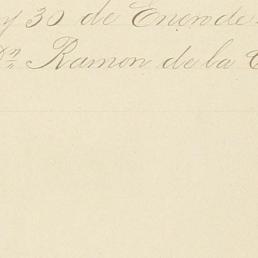 y 30 de Enero de
Dn Ramon de la C